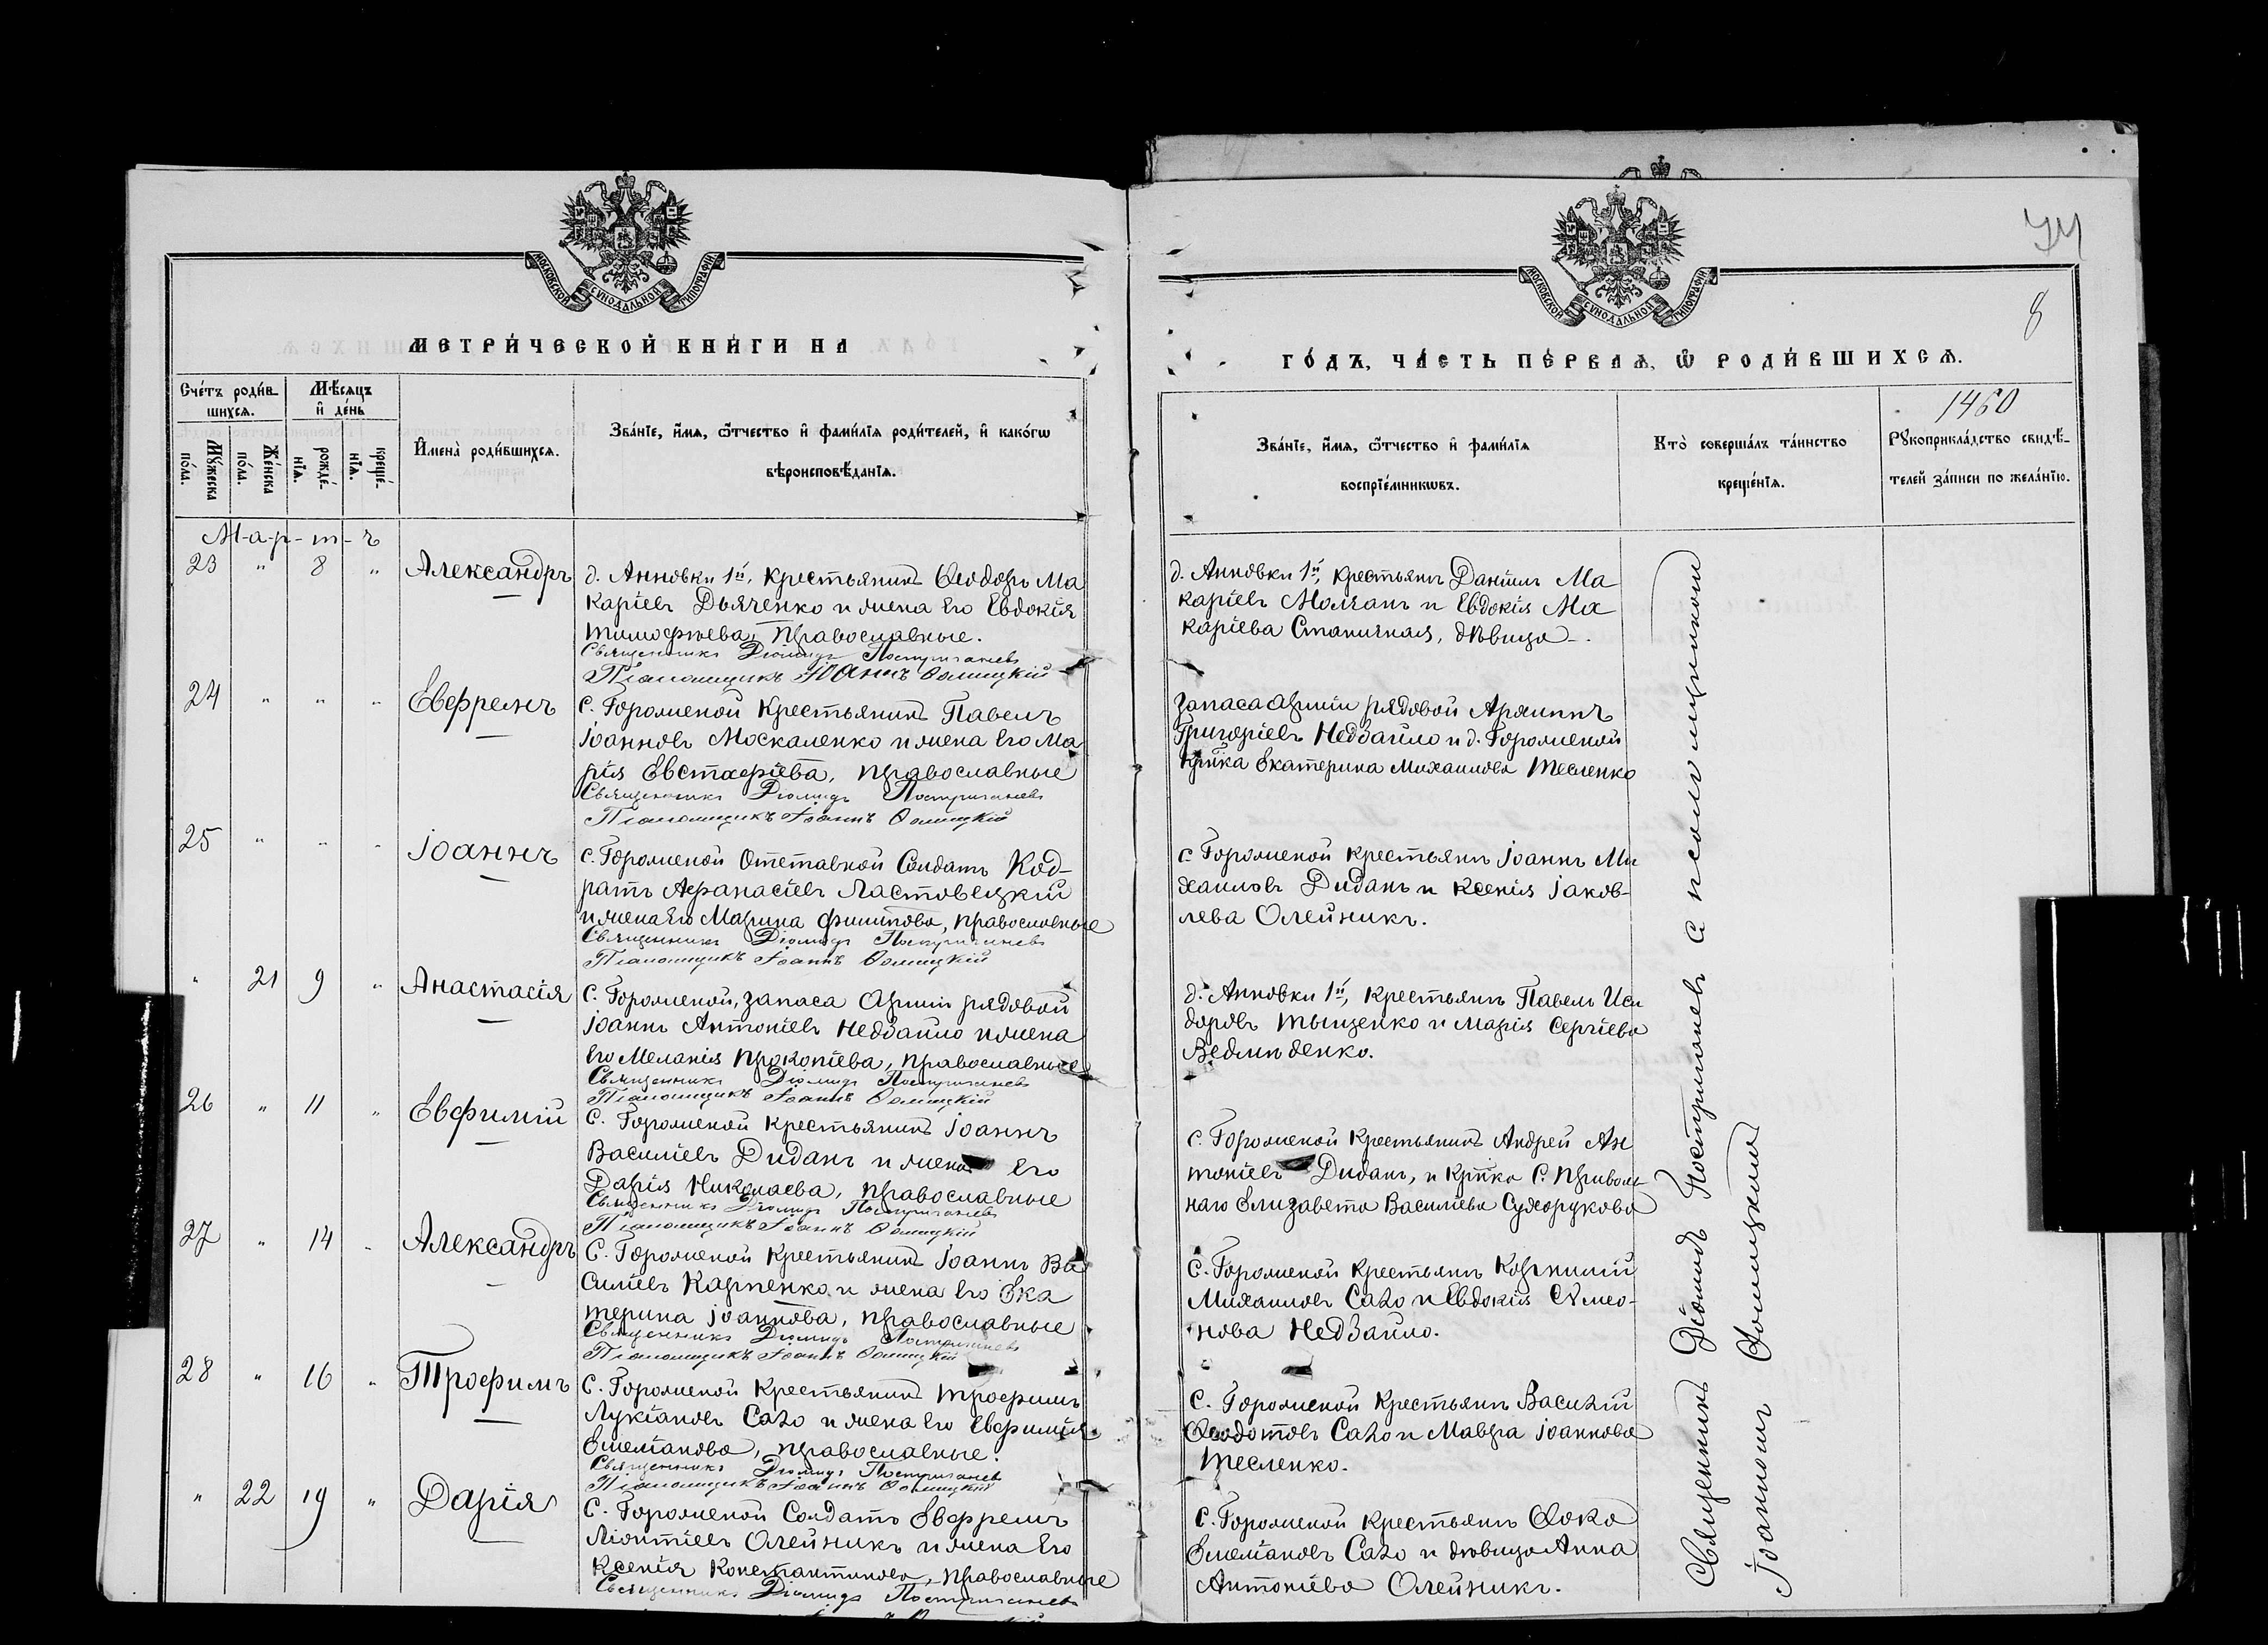 МОСКОВСКОЙ СѴНОДАЛЬНОЙ ТИПОГРАФІИ
МЕТРИ́ЧЕСКОЙ КНИ́ГИ НА
Сче́тъ роди́в-
шихсѧ.
Мѣ́сѧцъ
и҆ де́нь
Мꙋ́жеска
по́ла.
Же́нска
по́ла.
рожде́-
нїѧ.
креще́-
нїѧ.
И҆мена̀ роди́вшихсѧ.
Зва́нїе, и҆́мѧ, ѻ҆́тчество и҆ фами́лїѧ роди́телей, и҆ како́гѡ
вѣроисповѣ́данїѧ.
М-а-р-т-ъ
23 " 8 " Александръ
д. Анновки 1й, крестьянинъ Ѳеодоръ Ма
каріевъ Дьяченко и жена его Евдокія
Тимофѣева, православные.
Священникъ Діомидъ Постригачевъ
Псаломщикъ Іоаннъ Ѳомицкій
24 " " " Евфремъ
с. Гороженой крестьянинъ Павелъ
Іоанновъ Москаленко и жена его Ма
рія Евстафіева, православные
Священникъ Діомидъ Постригачевъ
Псаломщикъ Іоаннъ Ѳомицкій
25 " " " Іоаннъ
с. Гороженой Отставной Солдатъ Код-
ратъ Афанасіевъ Ластовецкій
и жена его Марина Филипова, православные
Священникъ Діомидъ Постригачевъ
Псаломщикъ Іоаннъ Ѳомицкій
" 21 9 " Анастасія
с. Гороженой, запаса Арміи рядовой
Іоаннъ Антоніевъ Недзаило и жена
его Меланія Прокопіева, православные
Священникъ Діомидъ Постригачевъ
Псаломщикъ Іоаннъ Ѳомицкій
26 " 11 " Евфимій
с. Гороженой крестьянинъ Іоаннъ
Василіевъ Диданъ и жена его
Дарія Николаева, православные
Священникъ Діомидъ Постригачевъ
Псаломщикъ Іоаннъ Ѳомицкій
27 " 14 " Александръ
с. Гороженой крестьянинъ Іоаннъ Ва
силіевъ Карпенко и жена его Ека
терина Іоаннова, православные
Священникъ Діомидъ Постригачевъ
Псаломщикъ Іоаннъ Ѳомицкій
28 " 16 " Трофимъ
с. Гороженой крестьянинъ Трофимъ
Лукіановъ Сахо и жена его Евфимія
Емеліанова, православные.
Священникъ Діомидъ Постригачевъ
Псаломщикъ Іоаннъ Ѳомицкій
" 22 19 " Дарія
с. Гороженой Солдатъ Евфремъ
Леонтіевъ Олейникъ и жена его
Ксенія Константинова, православные
Священникъ Діомидъ Постригачевъ
МОСКОВСКОЙ СѴНОДАЛЬНОЙ ТИПОГРАФІИ
8
ГО́ДЪ, ЧА́СТЬ ПЕ́РВАѦ, Ѽ РОДИ́ВШИХСѦ.
Зва́нїе, и҆́мѧ, ѻ҆́тчество и҆ фами́лїѧ
воспрїе́мникѡвъ.
Кто̀ соверша́лъ та́инство
креще́нїѧ.
1460
Рꙋкоприкла́дство свидѣ́-
телей за́писи по жела́нїю.
д. Анновки 1й, крестьянъ Даніилъ Ма
каріевъ Молчанъ и Евдокія Ма
каріева Станичная, дѣвица.
запаса арміи рядовой
Григоріевъ Недзаило и д. Гороженой
кр-тка Екатерина Михаилова Тесленко
с. Гороженой крестьянъ Іоаннъ Ми
хаиловъ Диданъ и Ксенія Іаков-
лева Олейникъ.
д. Анновки 1й, крестьянъ Павелъ Иси
доровъ Тыщенко и Марія Сергіева
Ведмиденко.
с. Гороженой крестьянинъ Андрей Ан
тоніевъ Диданъ, и кр-тка с. Приволь
наго Елизавета Василіева Сухорукова
с. Гороженой крестьянъ Корнилій
Михаиловъ Сахо и Евдокія Сѵмео-
нова Недзаило.
с. Гороженой крестьянъ Василій
Ѳеодотовъ Сахо и Мавра Іоаннова
Тесленко.
с. Гороженой крестьянъ Ѳока
Емеліановъ Сахо и дѣвица Анна
Антоніева Олейникъ.
Священникъ Діомидъ Постригачевъ с псаломщикомъ
Іоанномъ Ѳомицкимъ